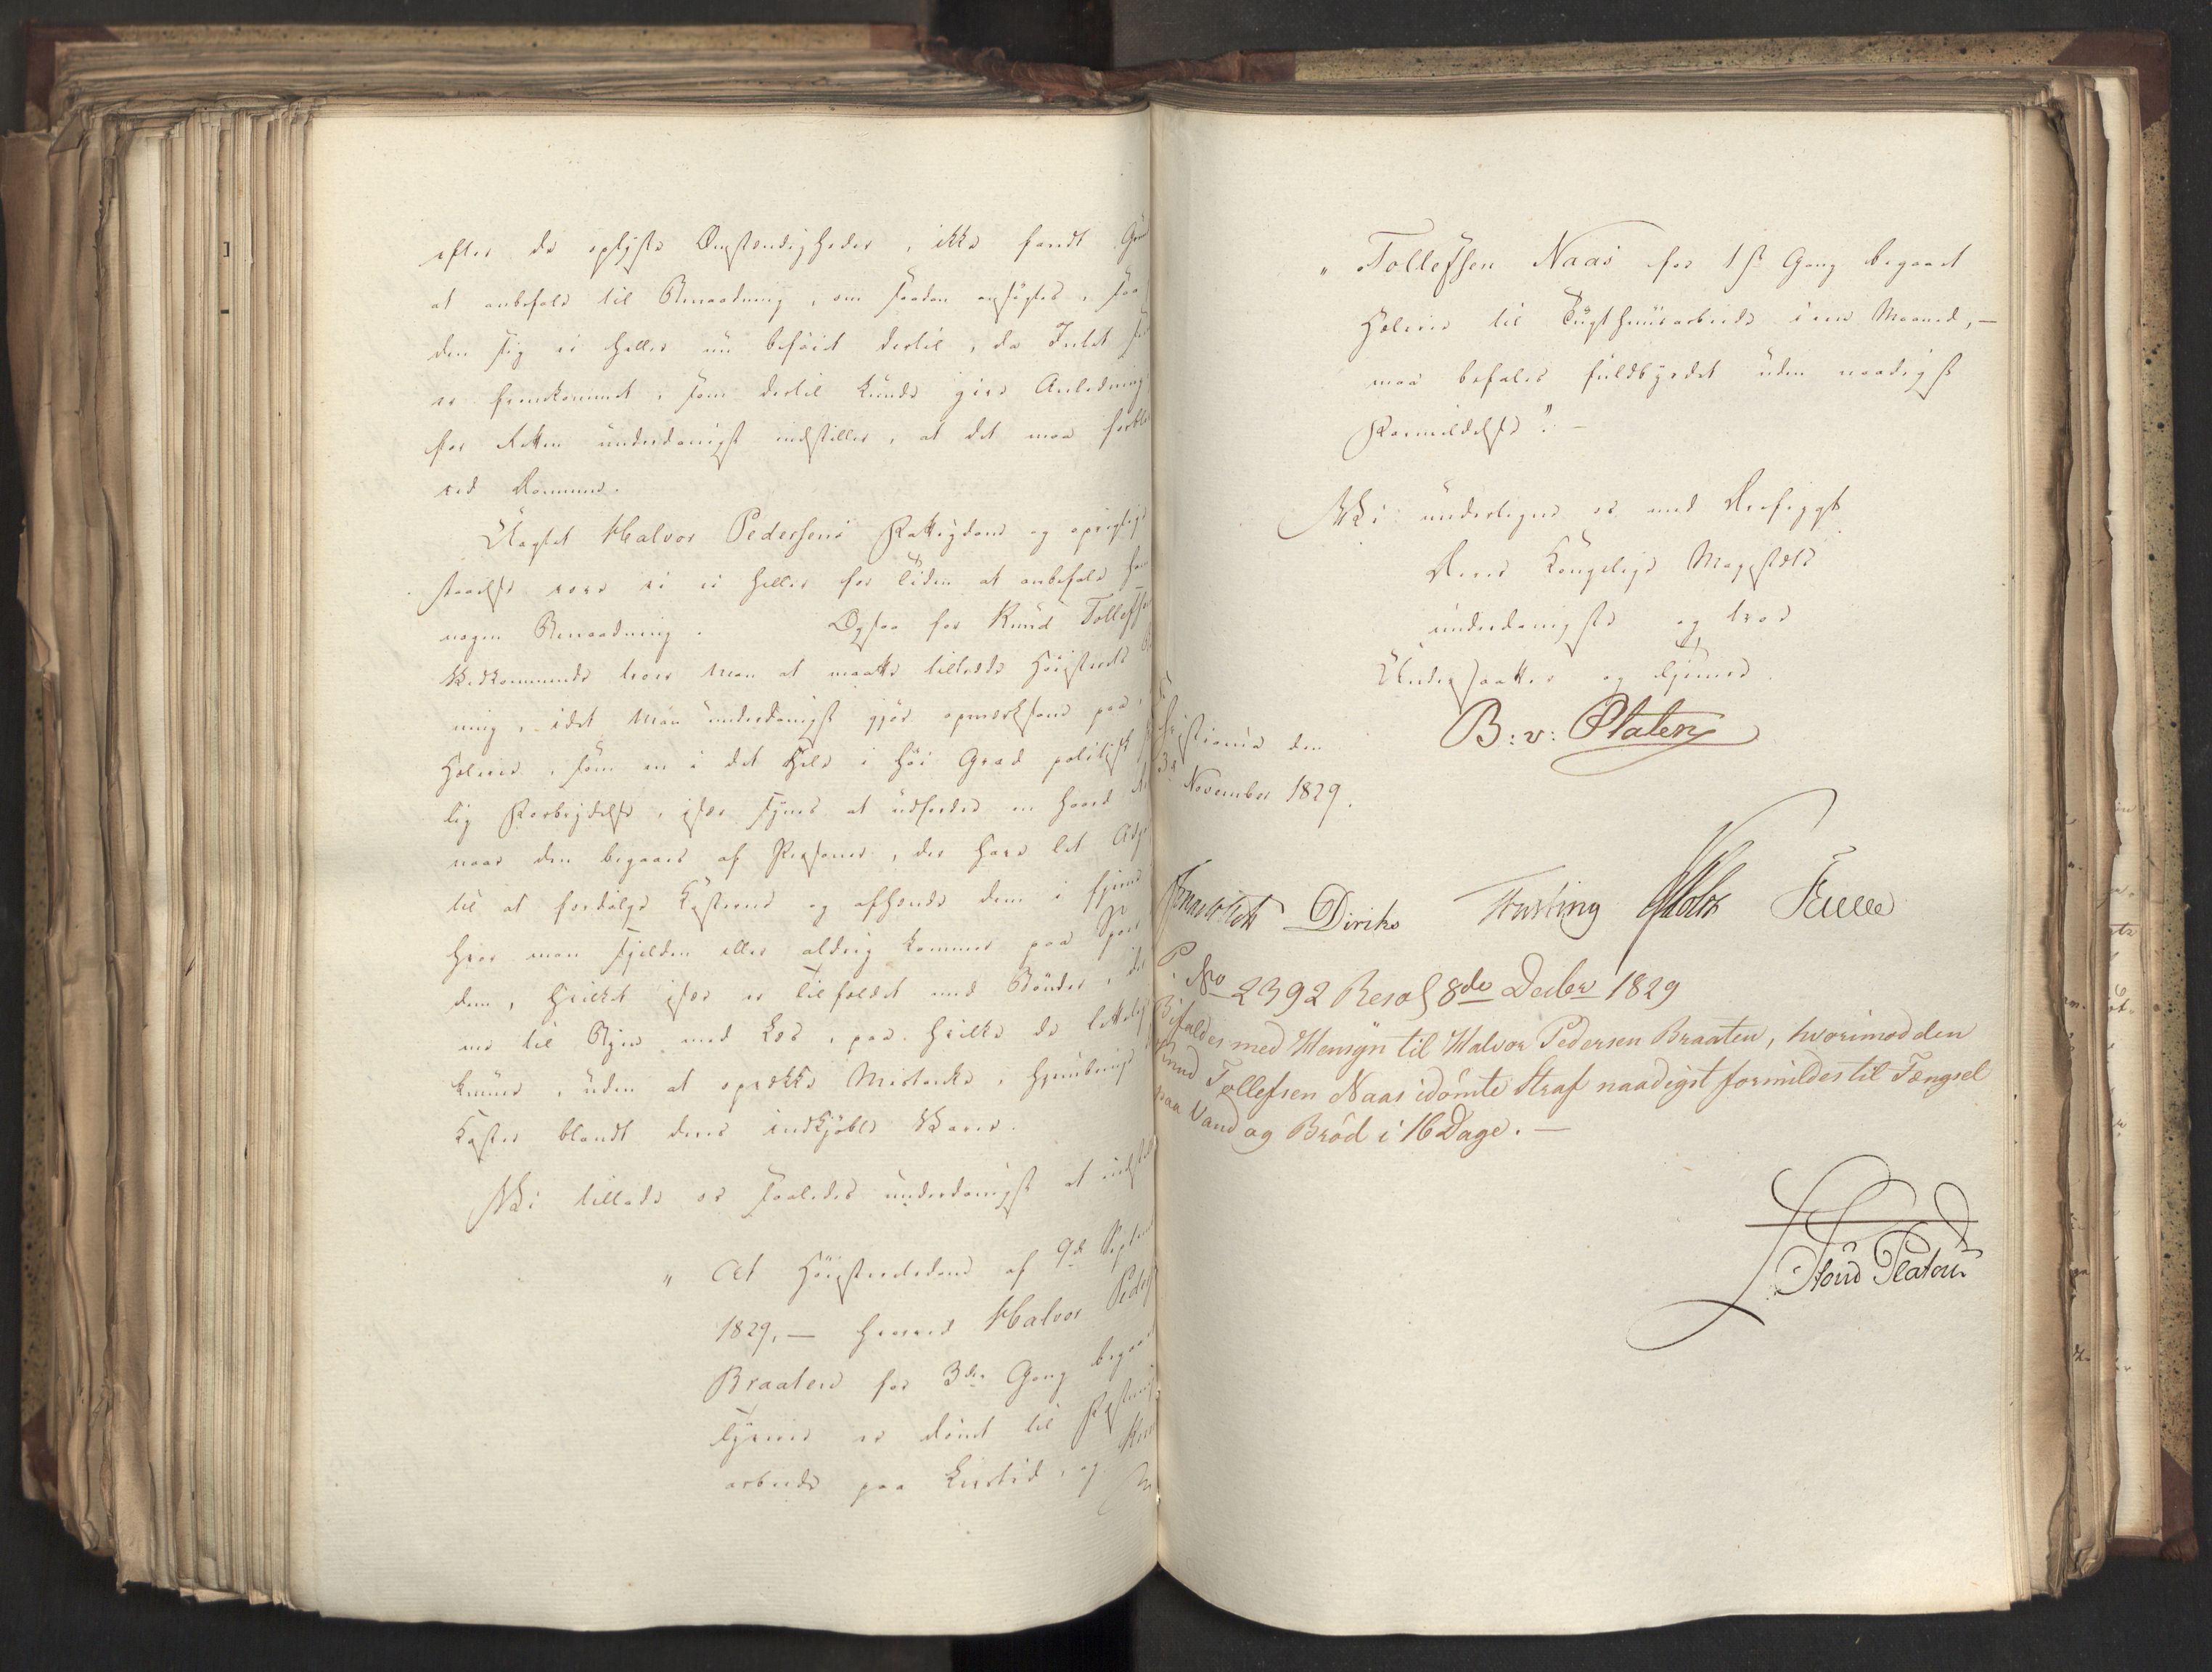 efter de oplyste Omstændigheder, ikke fandt
at anbefale til Benaadning, om saadan ansøgtes, saa
den sig ei heller nu beføiet dertil, da Intet
er fremkommet, som dertil kunde give Anledning
for Retten underdanigst indstiller, at det maa
ved Dommen.
Uagtet Halvor Pedersens Fattigdom og oprigtige
staaelse vove vi ei heller for Tiden at anbefale
nogen Benaadning. Ogsaa for Knud Tollefsen
Vedkommende troer man at maatte tiltræde Høiesterets
ning, idet man underdanigst gjør opmærksom paa,
Hæleri, som en i det Hele i høi Grad politisk
lig Forbrydelse, især synes at udfordre en haard
naar den begaaes af Personer, der have let
til at fordølge Kosterne og afhænde dem i fjerne
hvor man sjelden eller aldrig kommer paa Spor
dem, hvilket især er Tilfældet med Bønder,
me til Byen med Læs, paa hvilke de letteligen
kunne, uden at opvække Mistanke, hjembringe
Koster blandt deres indkjøbte Varer.
Vi tillade os saaledes underdanigst at
" At Høiesteretsdom af 9de
1829, — hvorved Halvor
Braaten for 3die Gang
Tyverie er dømt til
arbeide paa Livstid, og
" Tollefsen Naas for 1ste Gang begaaet
Hæleri til Tugthuusarbeide i een Maaned, —
maa befales fuldbyrdet uden naadigst
Formildelse". —
Vi undertegne os med Ærefrygt
Deres Kongelige Majestæts
underdanigste og troe
Undersaatter og Tjenere.
B: v: Platen
Christiania den
November 1829.
Diriks Fasting
P. No 2392 Resol 8de Decber 1829
Bifaldes med Hensyn til Halvor Pedersen Braaten, hvorimod den
Knud Tollefsen Naas idømte Straf naadigst formildes til Fængsel
paa Vand og Brød i 16 Dage. —